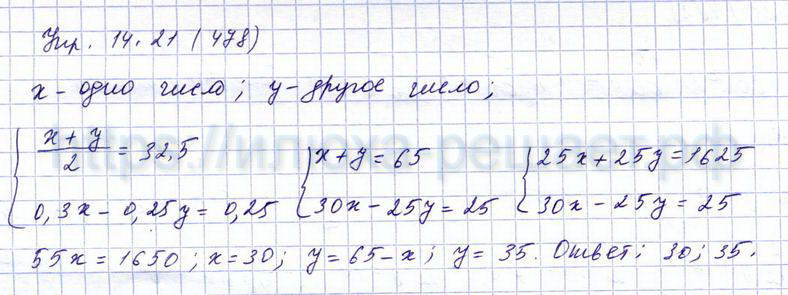 Упр. 14.21 (478)
x - одно число; y - другое число;
{ (x + y)/2 = 32,5 { x + y = 65 { 25x + 25y = 1625
0,3x - 0,25y = 0,25 30x - 25y = 25 30x - 25y = 25
55x = 1650; x = 30; y = 65 - x; y = 35. Ответ: 30; 35.
https://илюха-решает.рф